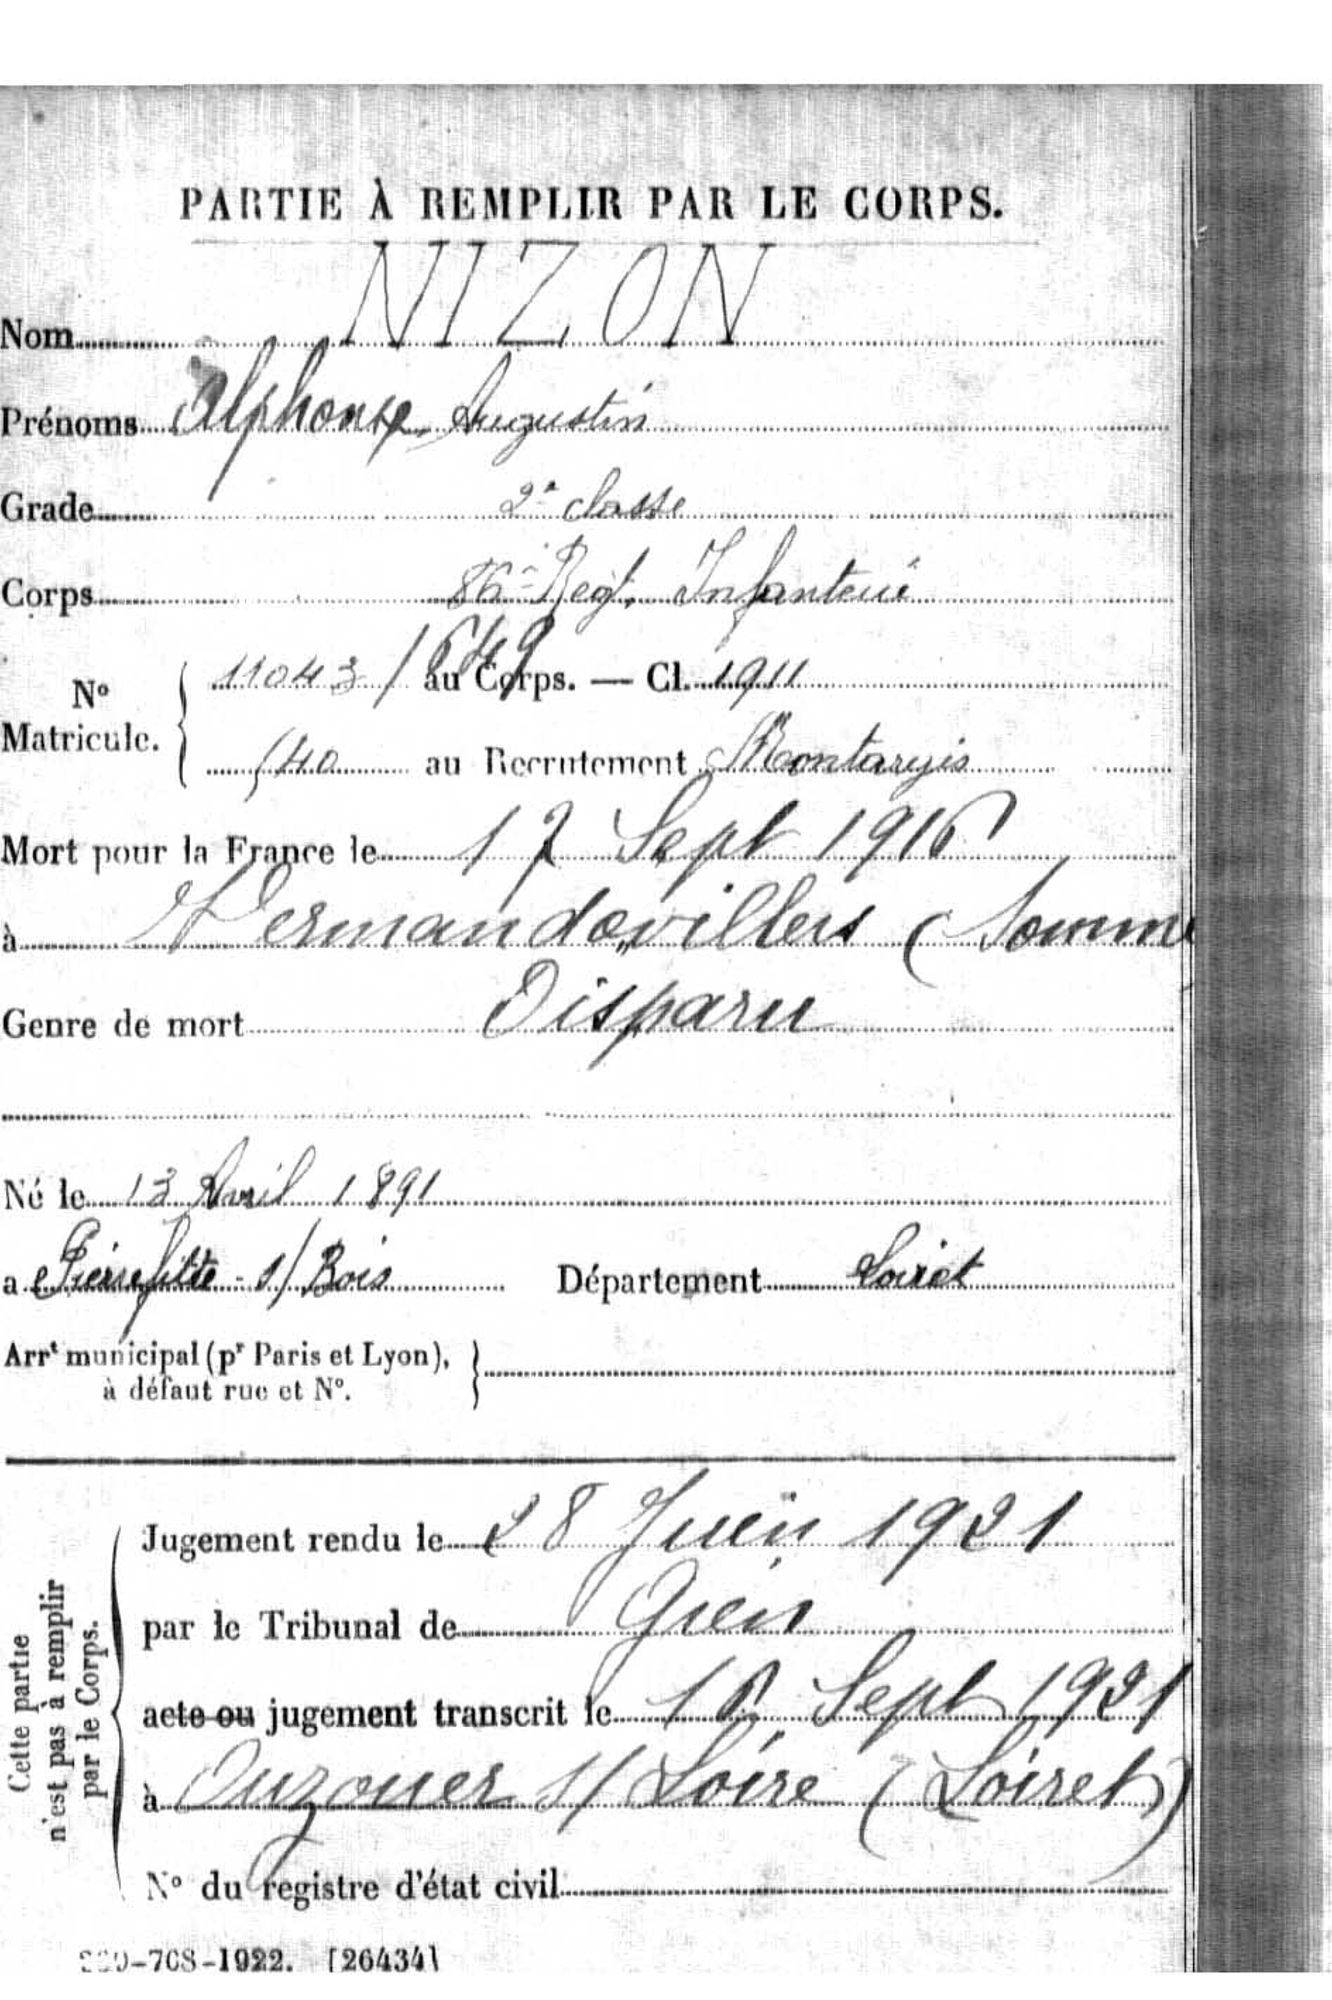 PARTIE À REMPLIR PAR LE CORPS.
Nom NIZON
Prénoms Alphonse Augustin
Grade 2e classe
Corps 86e Regt. Infanterie
No Matricule. 11043 / 1649 au Corps. — Cl. 1911
140 au Recrutement Montargis
Mort pour la France le 17 Sept 1916
à Vermandovillers (Somme
Genre de mort Disparu
Né le 13 Avril 1891
à Pierrefitte - s/ Bois Département Loiret
Arrt municipal (pr Paris et Lyon),
à défaut rue et No.
Cette partie
n'est pas à remplir
par le Corps.
Jugement rendu le 28 Juin 1921
par le Tribunal de Gien
acte ou jugement transcrit le Sept 1921
à Ouzouer s/ Loire (Loiret)
No du registre d'état civil
-708-1922. [26434]